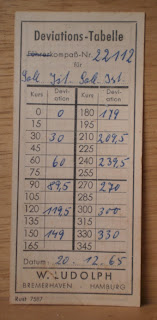 Deviations-Tabelle
Steuerkompaß-Nr. 22112
für
Soll. Ist. Soll. Ist.
Kurs Deviation Kurs Deviation
0 0 180 179
15 195
30 30 210 209,5
45 225
60 60 240 239,5
75 255
90 89,5 270 270
105 285
120 119,5 300 300
135 315
150 149 330 330
165 345
Datum: 20. 12. 65
W. LUDOLPH
BREMERHAVEN HAMBURG